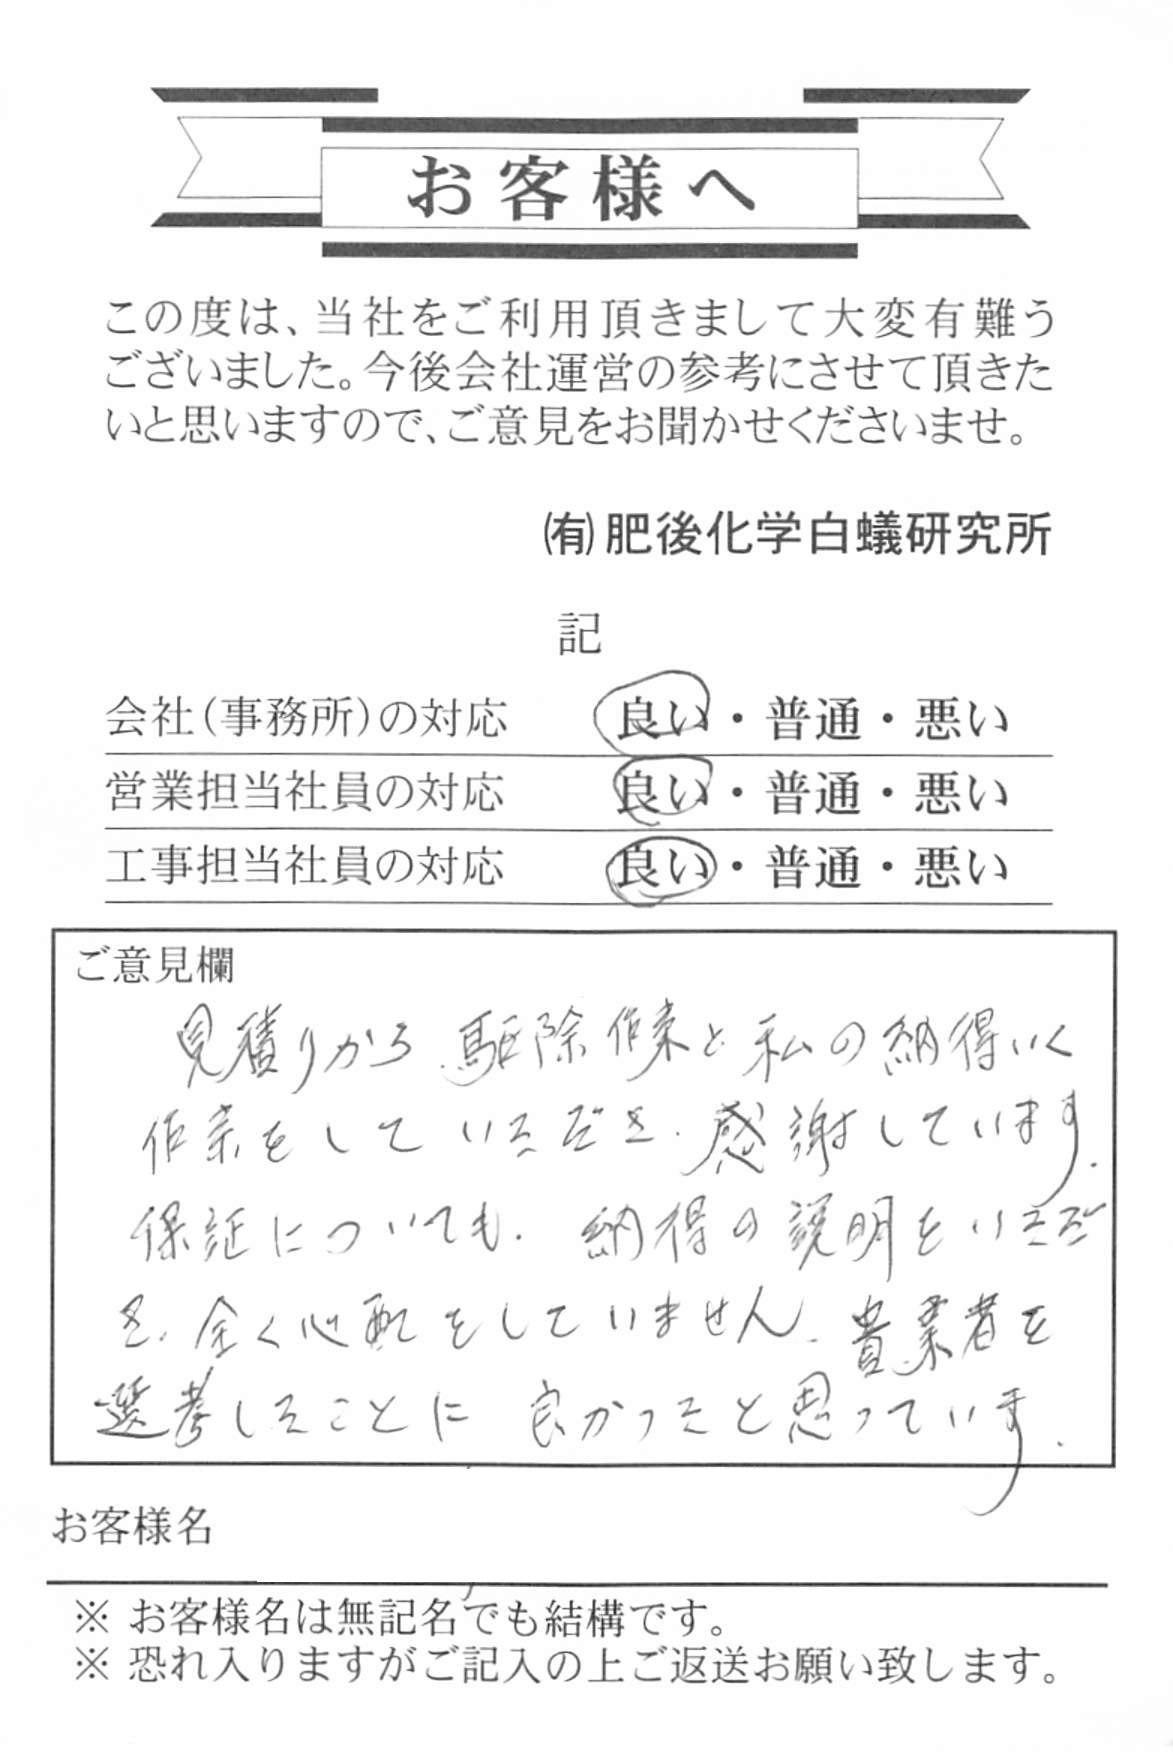 お客様へ
この度は、当社をご利用頂きまして大変有難う
ございました。今後会社運営の参考にさせて頂きた
いと思いますので、ご意見をお聞かせくださいませ。
㈲肥後化学白蟻研究所
記
会社(事務所)の対応 良い・普通・悪い
営業担当社員の対応 良い・普通・悪い
工事担当社員の対応 良い・普通・悪い
ご意見欄
見積りから、駆除作業と私の納得いく
作業をしていただき、感謝しています。
保証についても、納得の説明をいただ
き、全く心配をしていません。貴業者を
選考したことに 良かったと思っています。
お客様名
※ お客様名は無記名でも結構です。
※ 恐れ入りますがご記入の上ご返送お願い致します。